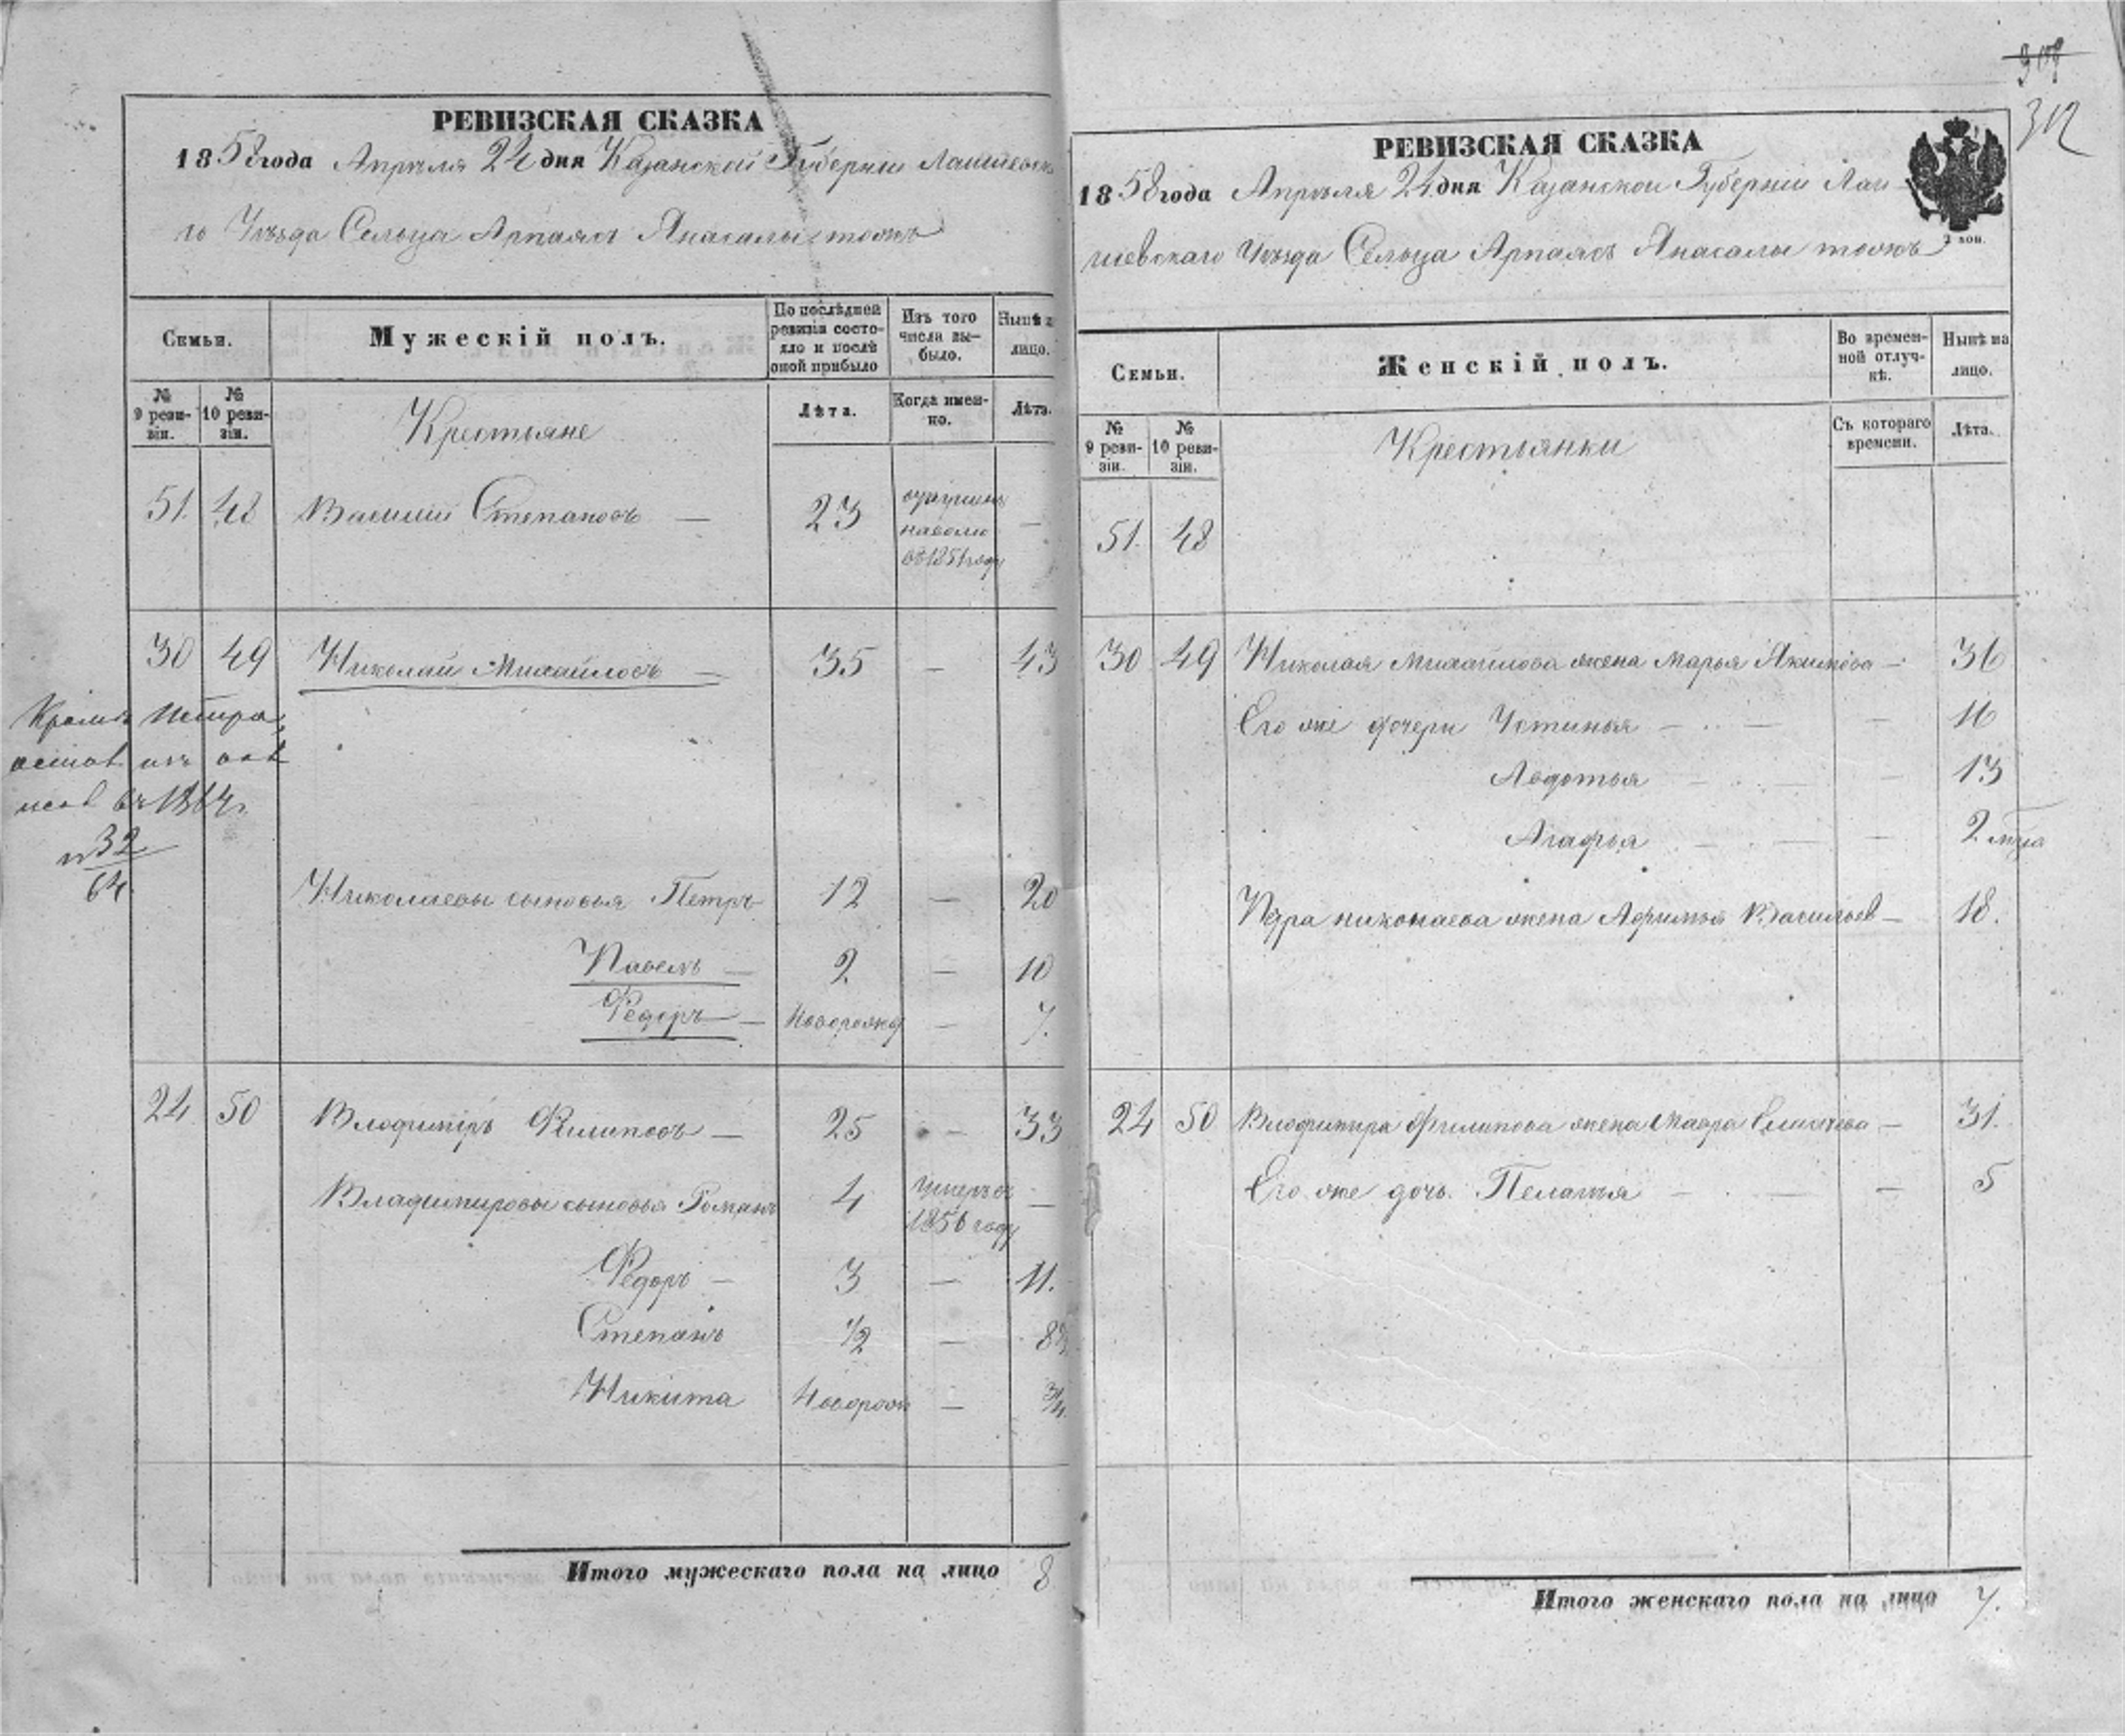 РЕВИЗСКАЯ СКАЗКА
1858 года Апрѣля 24 дня Казанской Губерніи Лаишевска
го Уѣзда Сельца Арпаясъ Янасалы тожъ
Семьи.
Мужескій полъ.
По послѣдней ревизіи состо-
яло и послѣ оной прибыло
Изъ того числа вы-
было.
Нынѣ на лицо.
№ 9 реви-
зіи.
№ 10 реви-
зіи.
Крестьяне
Лѣта.
Когда имен-
но.
Лѣта.
51. 48 Василий Степановъ — 23 —
отпущенъ
наволю
въ 1851 году
30 49 Николай Михайловъ — 35 — 43
Кромѣ Петра
въ 1864 г.
№ 32
64
Николаевы сыновья Петръ 12 — 20
Павелъ — 2 — 10
Федоръ — Новорожд — 7.
24 50 Влодимiръ Филиповъ — 25 — 33
Владимировы сыновья Романъ 4 умеръ въ 1856 году —
Федоръ — 3 — 11.
Степанъ 1/2 — 8 1/2
Никита Новорож — 3/4
Итого мужескаго пола на лицо 8
307
312
РЕВИЗСКАЯ СКАЗКА
1858 года Апрѣля 24 дня Казанской Губерніи Лаи-
шевскаго Уѣзда Сельца Арпаясъ Янасалы тожъ
2 коп.
Семьи.
Женскій полъ.
Во времен-
ной отлуч-
кѣ.
Нынѣ на лицо.
№ 9 реви-
зіи.
№ 10 реви-
зіи.
Крестьянки
Съ котораго времени.
Лѣта.
51. 48
30 49 Николая Михайлова жена Марья Якимова — 36
Его же дочери Устинья — — 16
Авдотья — — 13
Агафья — — 2 мѣца
Петра николаева жена Афимья Васильев — 18.
24 50 Влодимира Филипова жена Мавра — 31.
Его же дочь Пелагья — — 5
Итого женскаго пола на лицо 7.